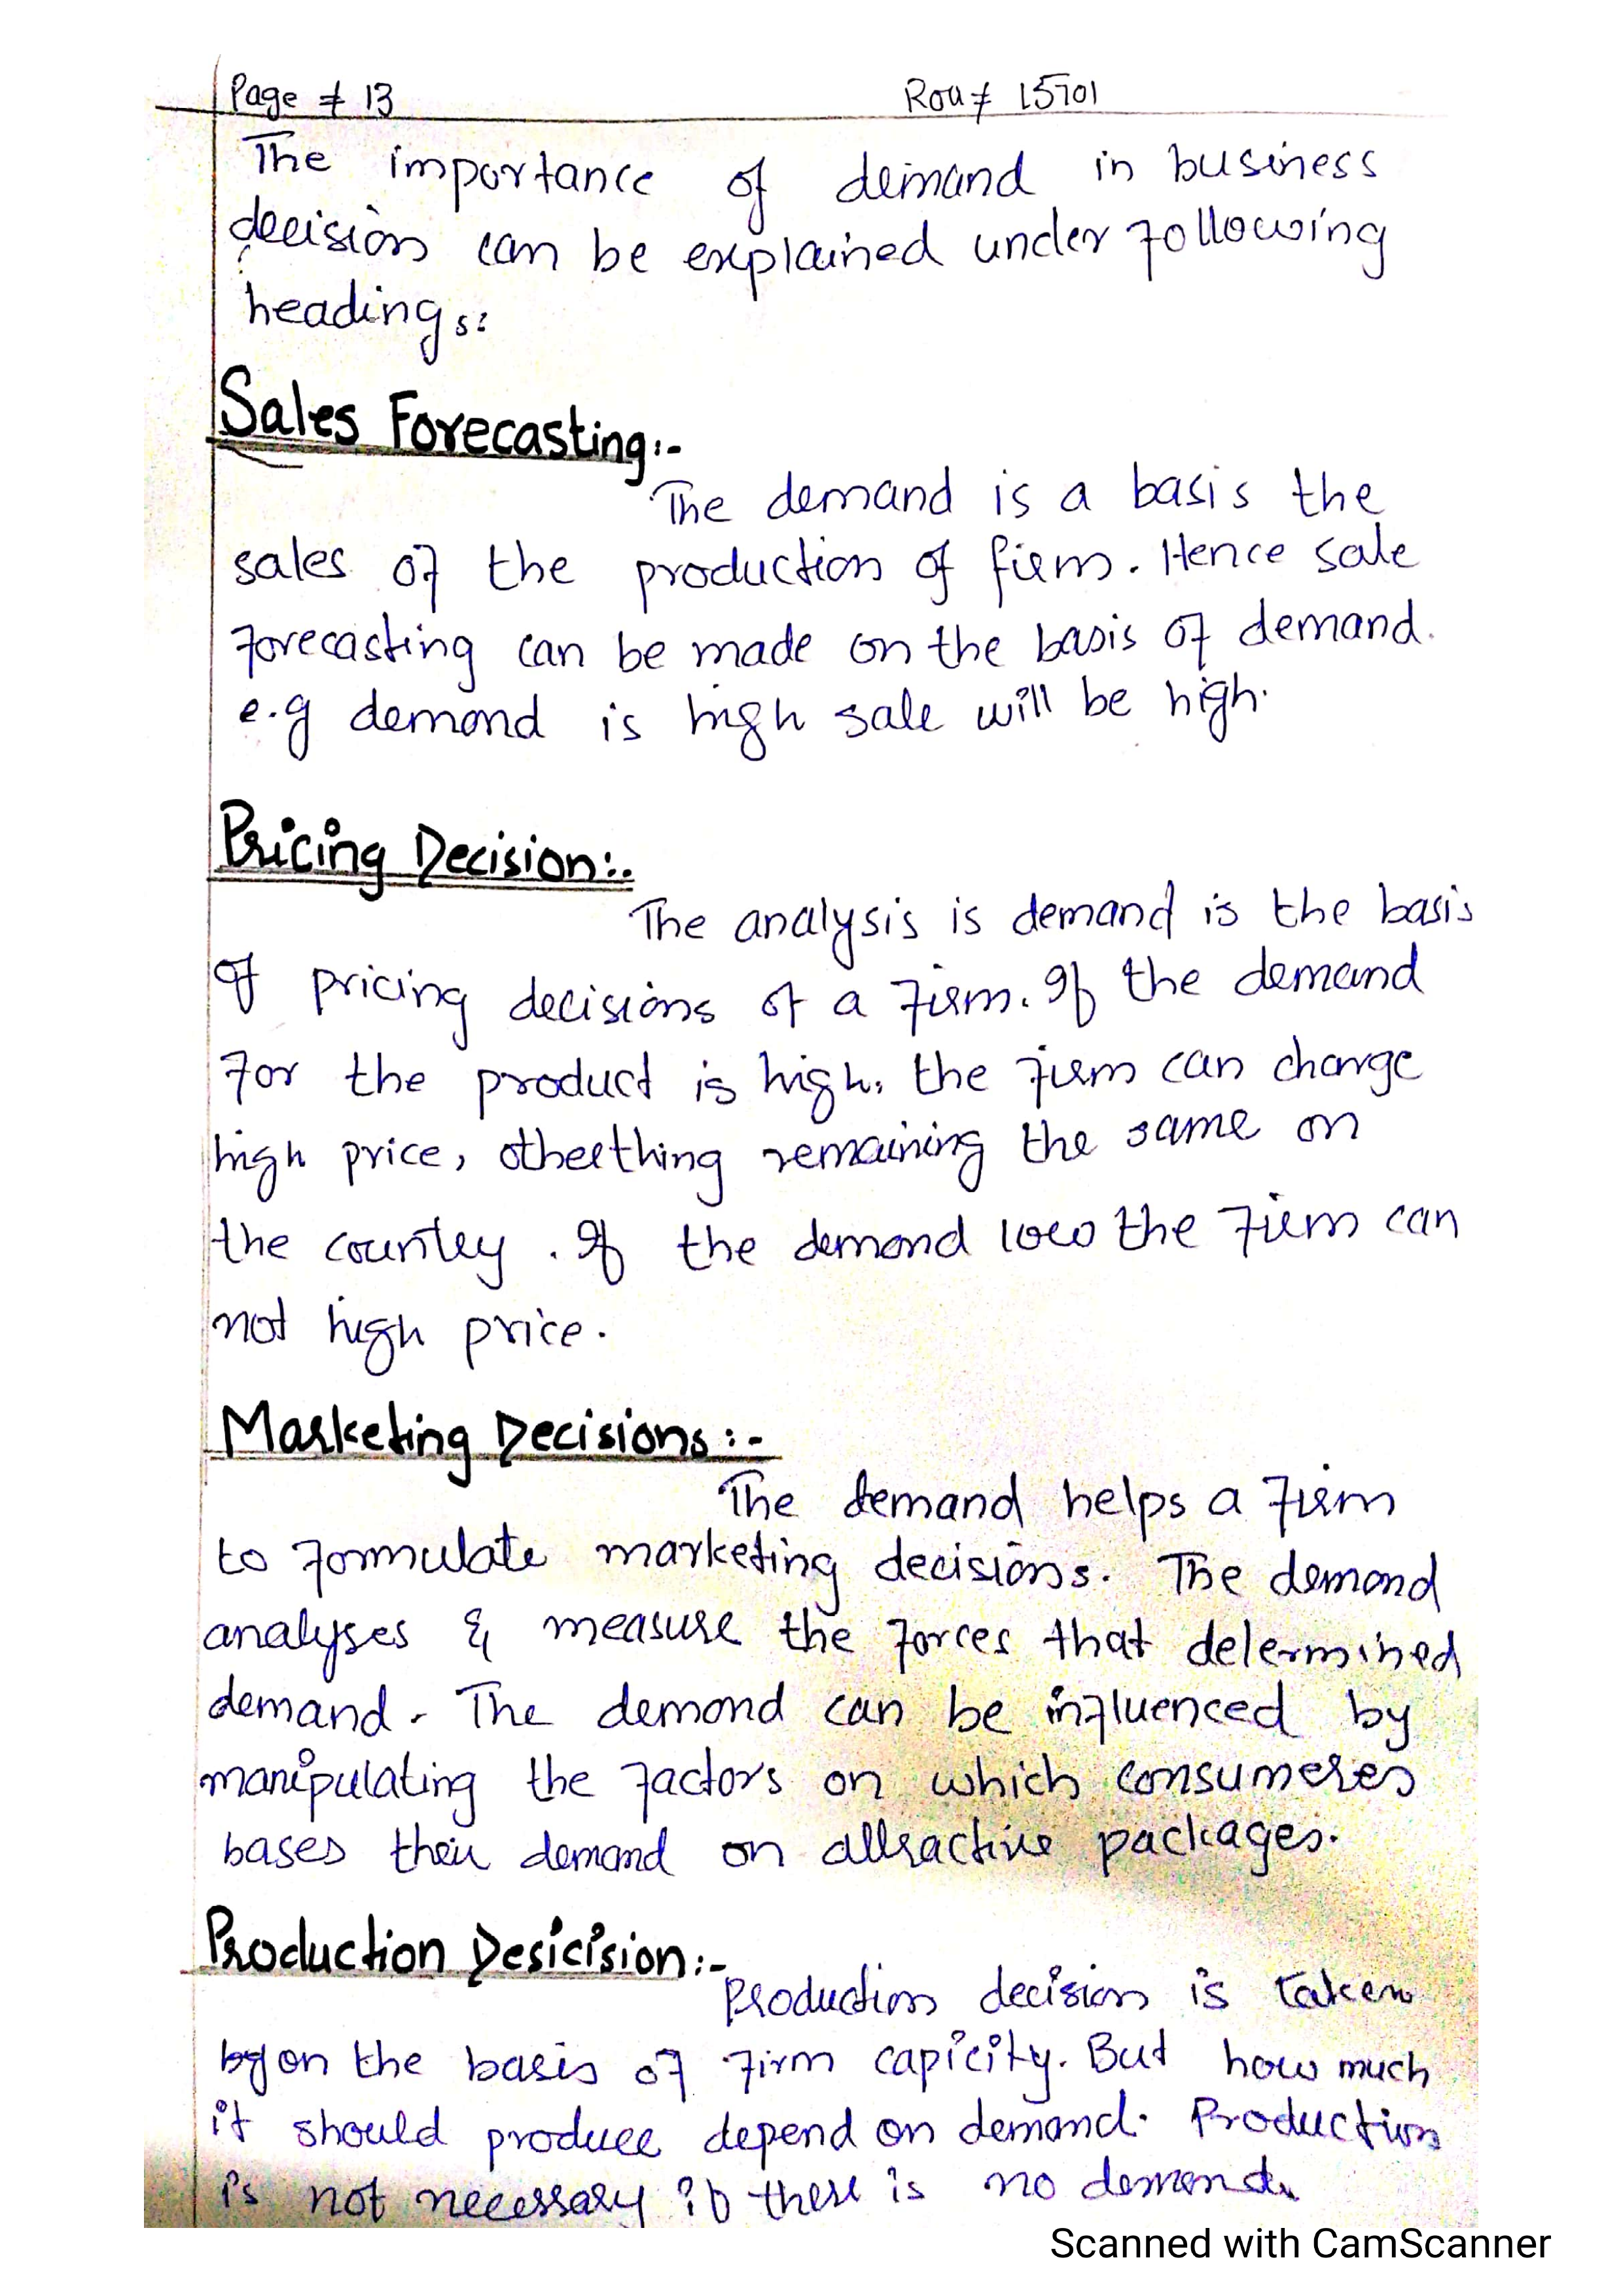 Page # 13 Roll # 15701
The importance of demand in business
decision can be explained under following
headings:
Sales Forecasting:-
The demand is a basis the
sales of the production of firm. Hence sale
forecasting can be made on the basis of demand.
e.g demand is high sale will be high.
Pricing Decision:-
The analysis is demand is the basis
of pricing decisions of a firm. If the demand
for the product is high, the firm can charge
high price, otherthing remaining the same on
the country. If the demand low the firm can
not high price.
Marketing Decisions:-
The demand helps a firm
to formulate marketing decisions. The demand
analyses & measure the forces that determined
demand. The demand can be influenced by
manipulating the factors on which consumeres
bases their demand on attractive packages.
Production Desicision:-
Production decision is taken
on the basis of firm capicity. But how much
it should produce depend on demand. Production
is not necessary if there is no demand.
Scanned with CamScanner